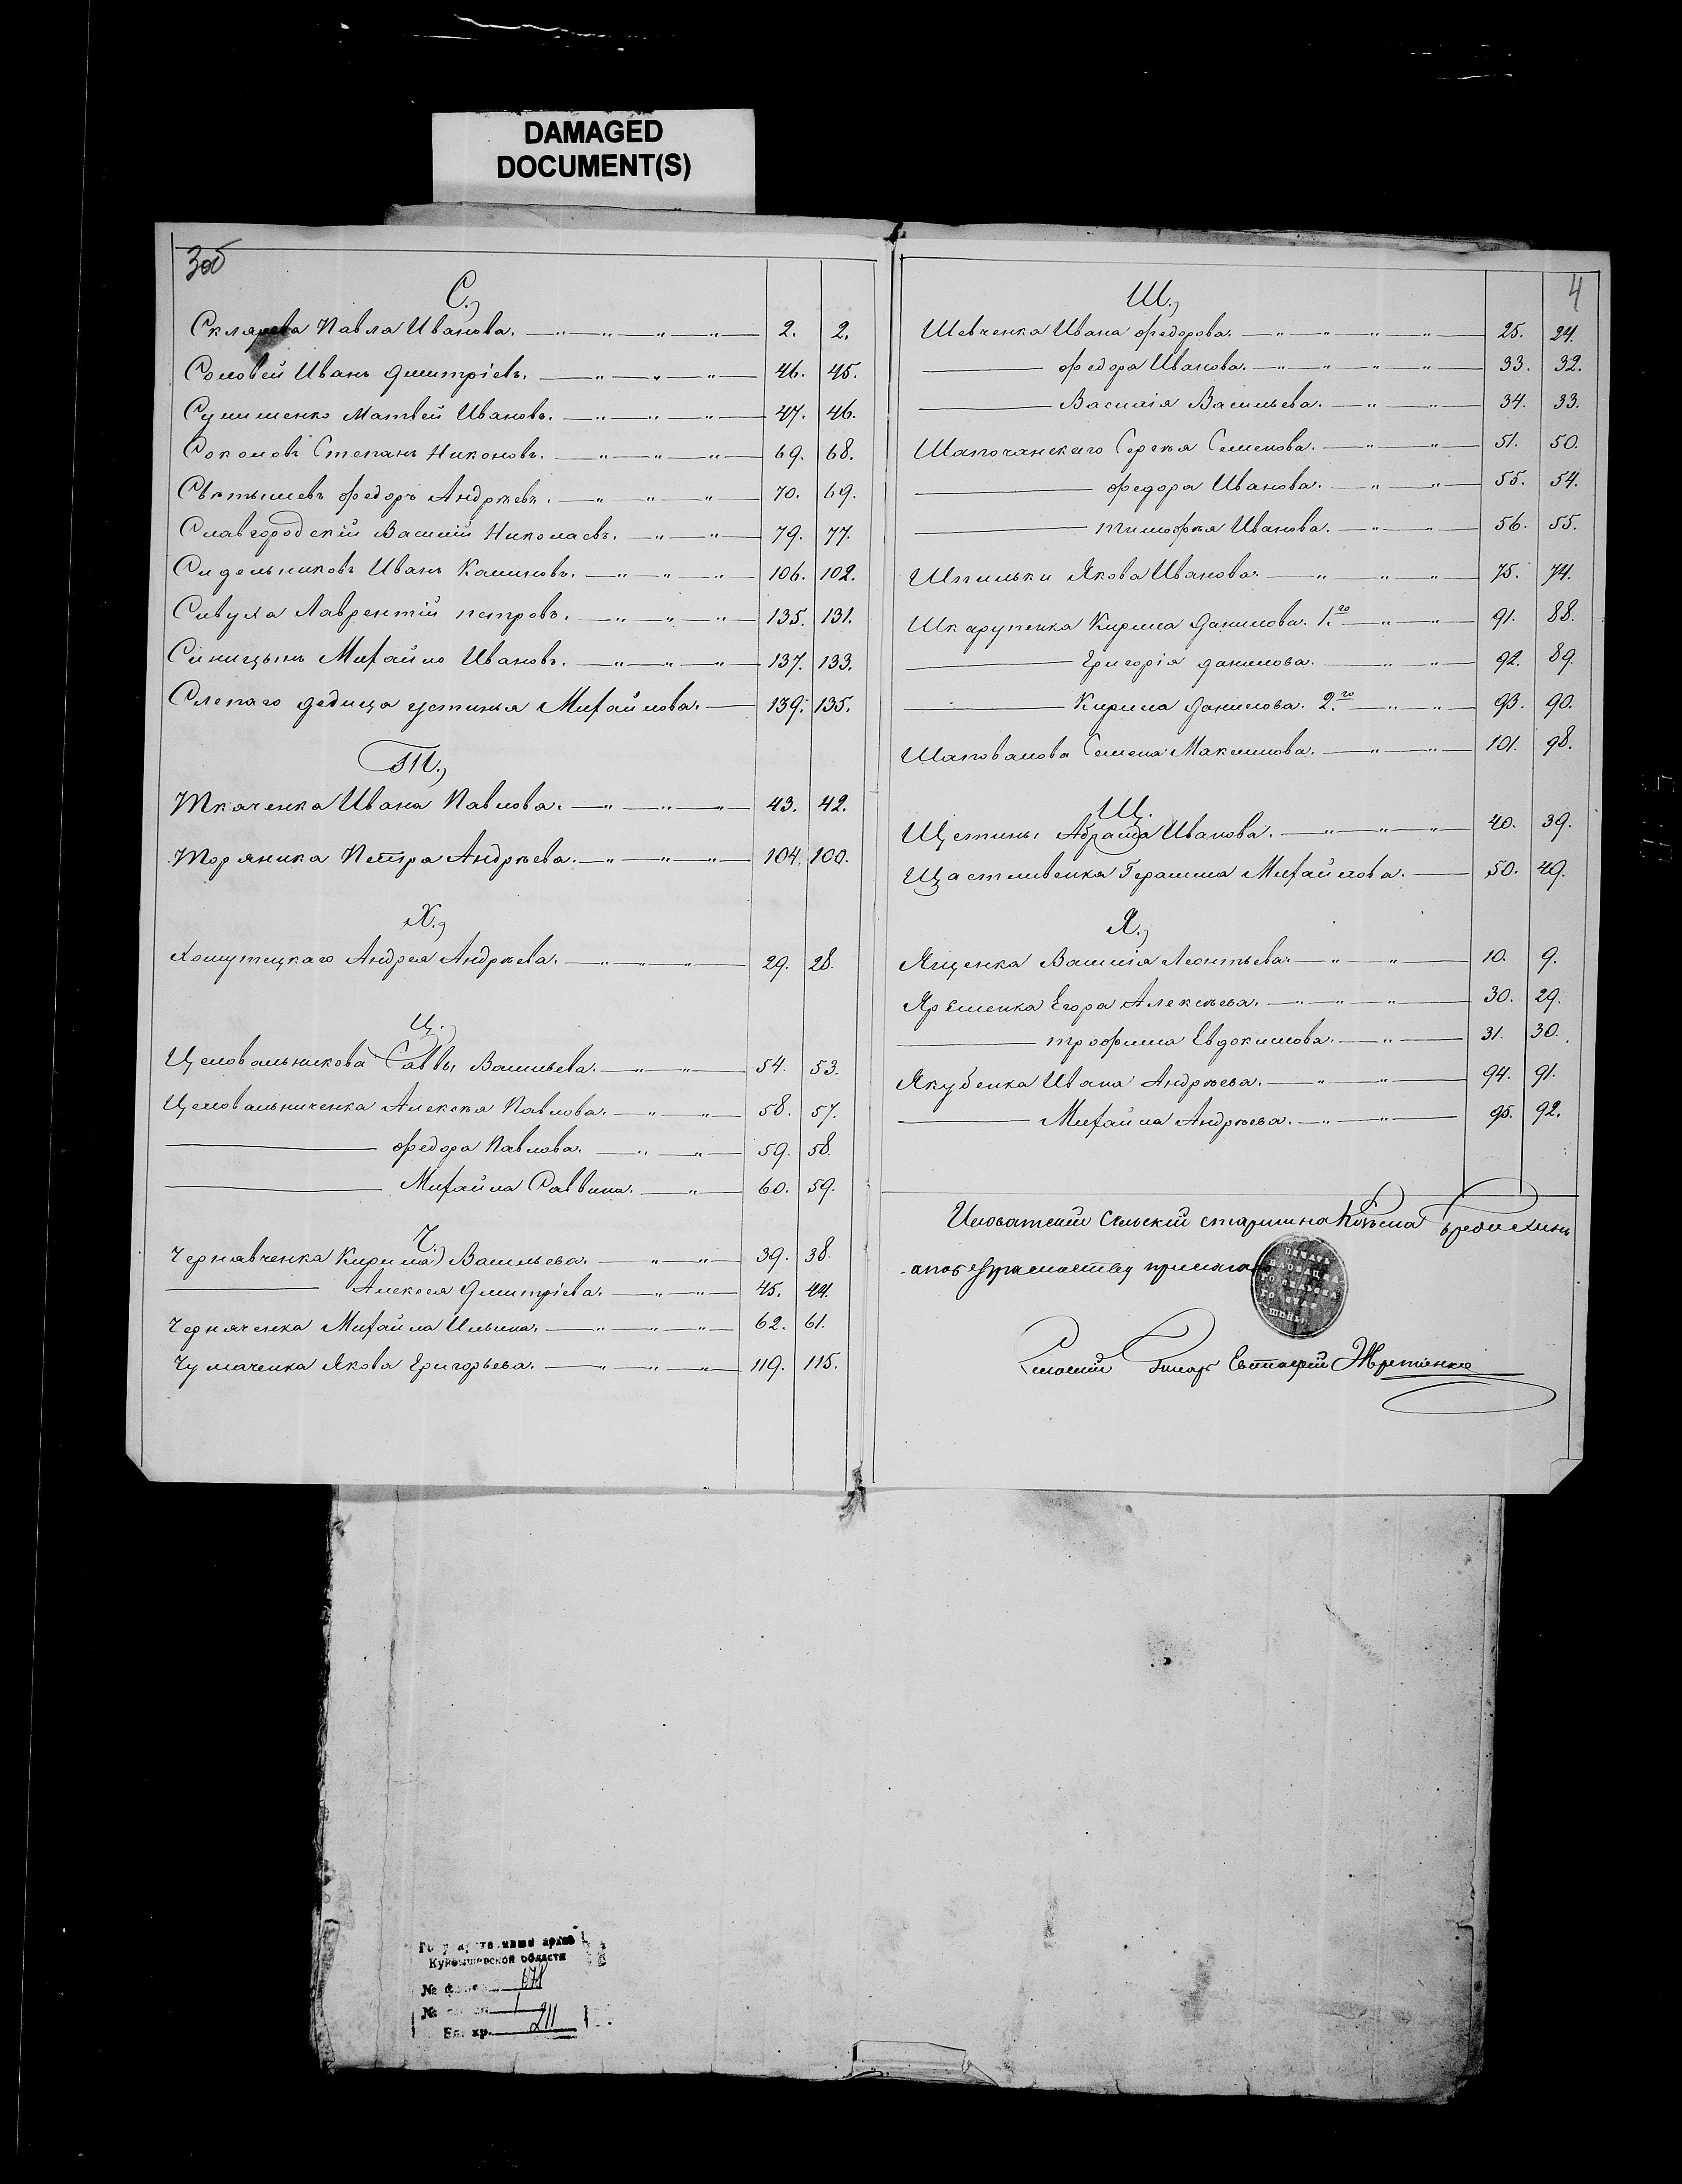 DAMAGED
DOCUMENT(S)
3об
С.,
Склярева Павла Иванова. 2. 2.
Соловей Иванъ Дмитріевъ. 46. 45.
Сушименко Матвей Ивановъ. 47. 46.
Соколовъ Степанъ Никоновъ. 69. 68.
Свѣтышевъ Федоръ Андрѣевъ. 70. 69.
Славгородскій Василій Николаевъ. 79. 77.
Сидельниковъ Иванъ Калиновъ. 106. 102.
Сивуха Лаврентій Петровъ. 135. 131.
Синицынъ Михайло Ивановъ. 137. 133.
Слепаго дедица Устинья Михайлова. 139. 135.
Т.,
Ткаченка Ивана Павлова. 43. 42.
Торяника Петра Андрѣева. 104. 100.
Х.,
Хомутецкаго Андрея Андрѣева. 29. 28.
Ц.,
Целовальникова Саввы Васильева. 54. 53.
Целовальниченка Алексѣя Павлова. 58. 57.
Федора Павлова. 59. 58.
Михайла Саввина. 60. 59.
Ч.,
Чернявченка Кирила Васильева. 39. 38.
Алексея Дмитріева. 45. 44.
Черняченка Михайла Ильина. 62. 61.
Чумаченка Якова Григорьева. 119. 115.
4
Ш.,
Шевченка Ивана Федорова. 25. 24.
Федора Иванова. 33. 32.
Василія Васильева. 34. 33.
Шапочанскаго Сергѣя Семенова. 51. 50.
Федора Иванова. 55. 54.
Тимофѣя Иванова. 56. 55.
Шпильки Якова Иванова. 75. 74.
Шкарупенка Кирила Данилова. 1го 91. 88.
Григорія Данилова. 92. 89.
Кирила Данилова. 2го 93. 90.
Шаповалова Семена Максимова. 101. 98.
Щ.
Щетины Абрама Иванова. 40. 39.
Щастливенка Герасима Михайлова. 50. 49.
Я.,
Ященка Василія Леонтьева. 10. 9.
Яременка Егора Алексѣева. 30. 29.
Трофима Евдокимова. 31. 30.
Якубенка Ивана Андрѣева. 94. 91.
Михайла Андрѣева. 95. 92.
Сельский старшина
Архив
Куйбышевской области
№
№ 1
Ед. хр. 211